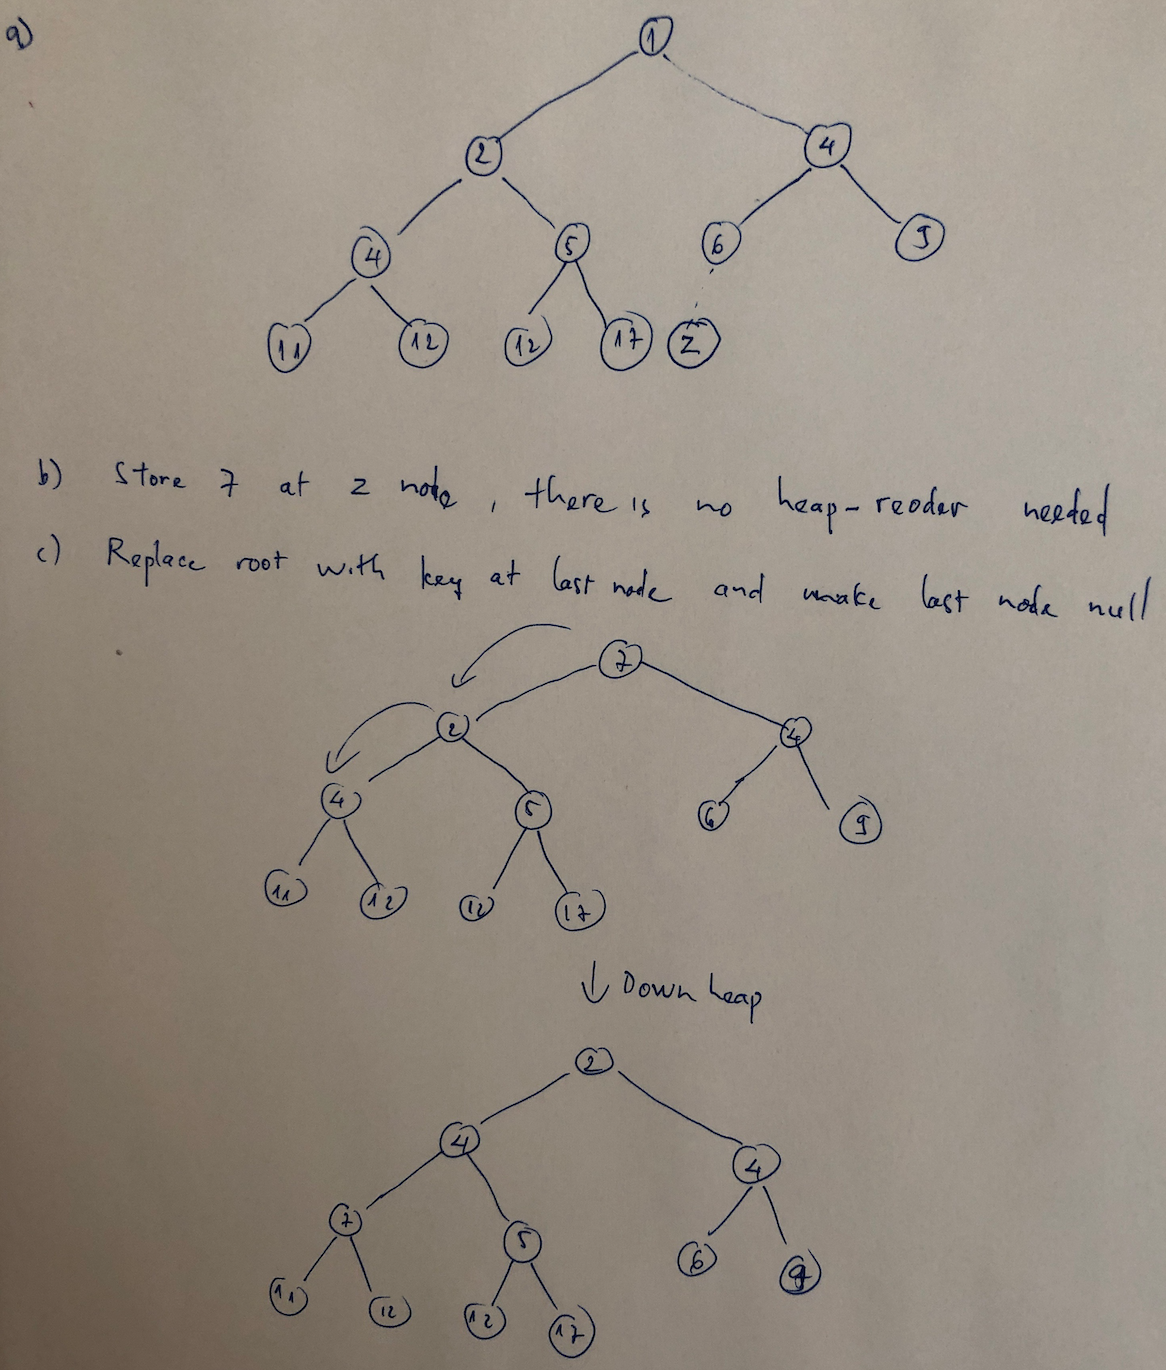 a)
1
2 4
4 5 6 9
11 12 12 17 z
b) Store 7 at z node, there is no heap-reoder needed
c) Replace root with key at last node and make last node null
7
2 4
4 5 6 9
11 12 12 17
↓ Down heap
2
4 4
7 5 6 9
11 12 12 17